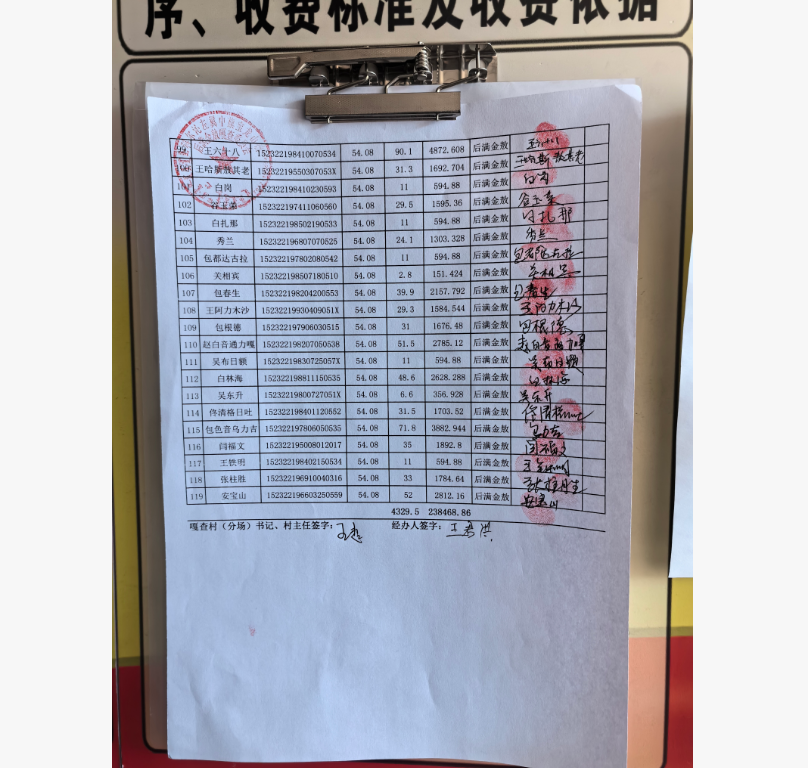 序、收费标准及收费依据
99 王六十八 152322198410070534 54.08 90.1 4872.608 后满金敖
100 王哈斯敖其老 15232219550307053X 54.08 31.3 1692.704 后满金敖
101 白岗 152322198410230593 54.08 11 594.88 后满金敖 白岗
102 谷玉荣 152322197411060560 54.08 29.5 1595.36 后满金敖 谷玉荣
103 白扎那 152322198502190533 54.08 11 594.88 后满金敖 白扎那
104 秀兰 152322196807070525 54.08 24.1 1303.328 后满金敖 秀兰
105 包都达古拉 152322197802080542 54.08 11 594.88 后满金敖
106 关相宾 152322198507180510 54.08 2.8 151.424 后满金敖
107 包春生 152322198204200553 54.08 39.9 2157.792 后满金敖 包春生
108 王阿力木沙 15232219930409051X 54.08 29.3 1584.544 后满金敖 王阿力木沙
109 包根德 152322197906030515 54.08 31 1676.48 后满金敖 包根德
110 赵白音通力嘎 152322198207050538 54.08 51.5 2785.12 后满金敖
111 吴布日额 15232219830725057X 54.08 11 594.88 后满金敖 吴布日额
112 白林海 152322198811150535 54.08 48.6 2628.288 后满金敖 白林海
113 吴东升 15232219800727051X 54.08 6.6 356.928 后满金敖 吴东升
114 佟清格日吐 152322198401120552 54.08 31.5 1703.52 后满金敖
115 包色音乌力吉 152322197806050535 54.08 71.8 3882.944 后满金敖
116 闫福文 152322195008012017 54.08 35 1892.8 后满金敖 闫福文
117 王铁明 152322198402150534 54.08 11 594.88 后满金敖
118 张桂胜 152322196910040316 54.08 33 1784.64 后满金敖
119 安宝山 152322196603250559 54.08 52 2812.16 后满金敖 安宝山
4329.5 238468.86
嘎查村（分场）书记、村主任签字： 经办人签字：